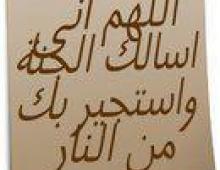 اللهم انى
اسالك الجنة
واستجير بك
من النار